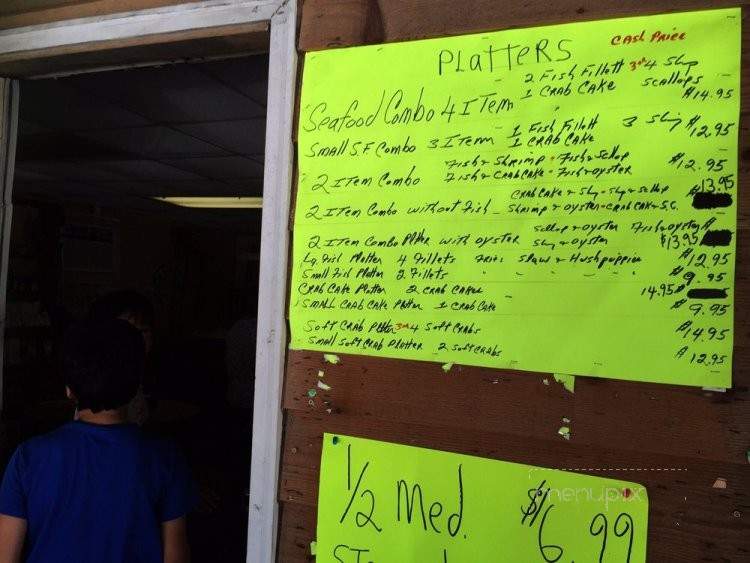 PLATTERS CASH PRICE
2 Fish Fillett 3 or 4 Shmp
Seafood Combo 4 ITem 1 CRAB CAKE Scallops $14.95
Small S.F. Combo 3 ITem 1 Fish Fillett 3 Shmp $12.95
1 CRAB CAKE
2 ITem Combo Fish & Shrimp - Fish & Scllop $12.95
Fish & CRAbCAKE - Fish & OysTer
CRAbCAKE & Shmp - Shmp & Scllop 13.95
2 ITem Combo without Fish - Shrimp & OysTer - CRAb CAKE & S.C.
Scllop & OysTer Fish & OysTer
2 ITem Combo PlATTer with OysTer Shmp & OysTer $13.95
Lg. Fish PlATTer 4 Fillets Fries Slaw & Hushpuppies $12.95
Small Fish PlATTer 2 Fillets " " " $9.95
CRAb CAKE PlATTer 2 CRAb CAKes 14.95
Small CRAb CAKE PlATTer 1 CRAb CAKE $9.95
SofT CRAb PlATTer 3 or 4 SofT CRAbs $14.95
Small SofT CRAb PlATTer 2 SofT CRAbs $12.95
1/2 Med. $6.99
menupix